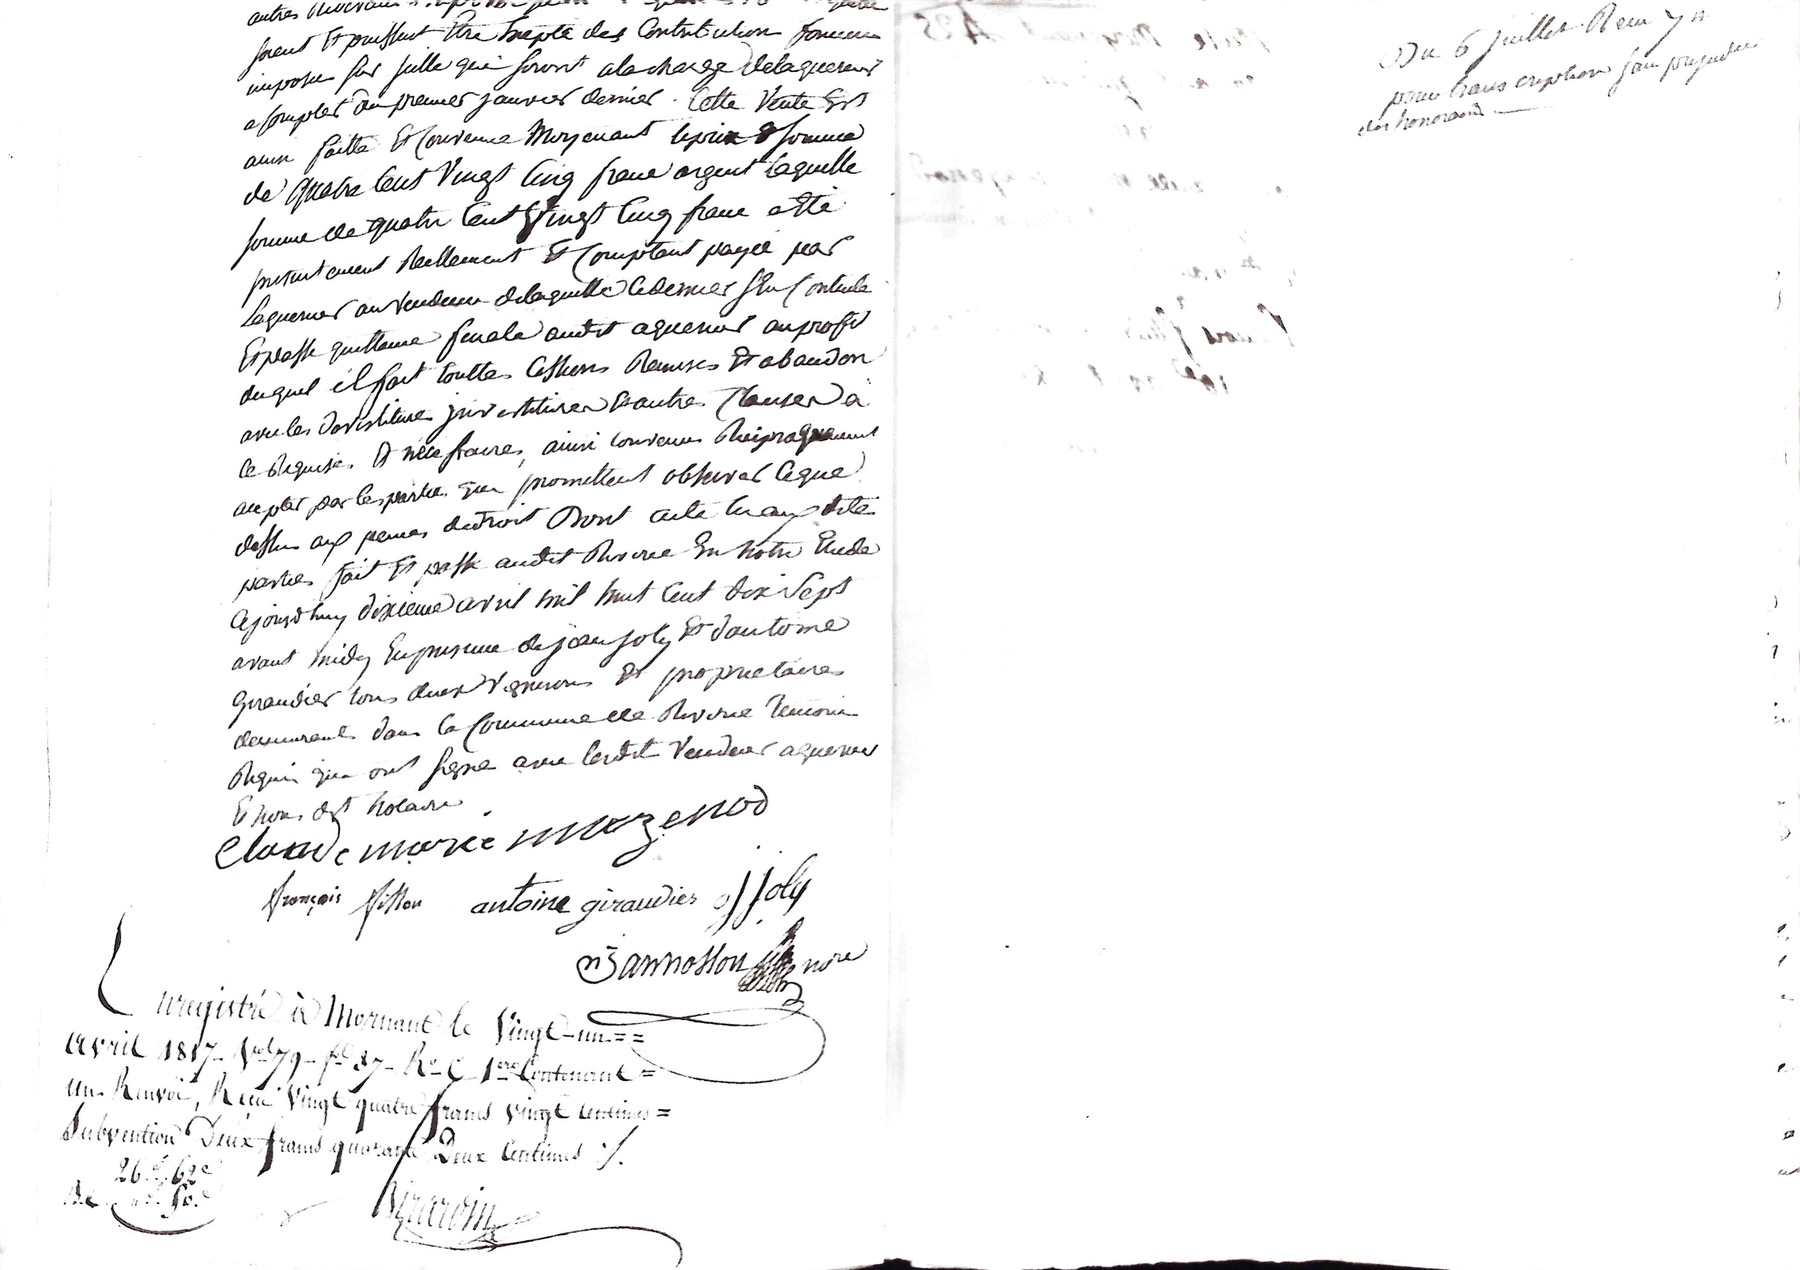 soient et puissent être
imposé sur icelle qui seront a la charge de laquereur
a compter du premier janvier dernier. Cette Vente est
ainsi faitte et Convenue Moyenant le prix et somme
de quatre Cent Vingt Cinq franc argent laquelle
somme de quatre Cent Vingt Cinq franc a été
presentement Reellement et Comptant payée par
laquereur au Vendeur de laquelle ce dernier s'en Contente
Et passe quittance finale audit aquereur au profit
duquel il fait touttes Cessions Remises Et abandon
avec les devestitures jnvestitures et autres Clauses à
ce Requises et nécessaires, ainsi convenus Reciproquement
accepté par les parties qui promettent observer ce que
dessus aux peines de droit Dont acte lu aux dites
parties fait et passé audit Riverie En notre Etude
cejourd'huy dixieme avril mil huit Cent dix Sept
avant midy En presence de jean joly Et d'antoine
giraudier tous deux Vignerons Et proprietaires
demeurants dans la Commune de Riverie temoins
Requis qui ont signé avec lesdit Vendeur aquereur
Et nous dit notaire
Claude marie mazenod
françois fillon antoine giraudier jjoly
Jannosson nore
Enregistré à Mornant le Vingt-un==
avril 1817- Vol 79- fol 87- Ro C 1ere Contenant=
un Renvoi, Reçu Vingt quatre francs vingt centimes=
Subvention Deux francs quarante Deux Centimes ./.
26 f. 62 c
Girardin
Du 6 juillet Reçu
pour transcription sans prejudice
des honoraires